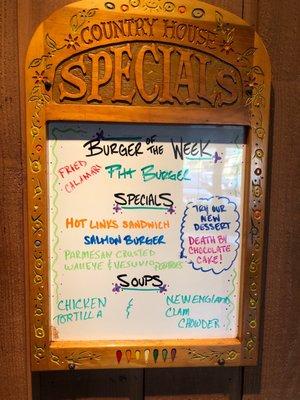 COUNTRY HOUSE
SPECIALS
BURGER OF THE WEEK
FRIED
CALAMARI
Pitt BURGER
SPECIALS
HOT LINKS SANDWICH
SALMON BURGER
PARMESAN CRUSTED
WALLEYE & VESUVIO POTATOES
TRY OUR
NEW
DESSERT
DEATH BY
CHOCOLATE
CAKE!
SOUPS
CHICKEN
TORTILLA
&
NEW ENGLAND
CLAM
CHOWDER